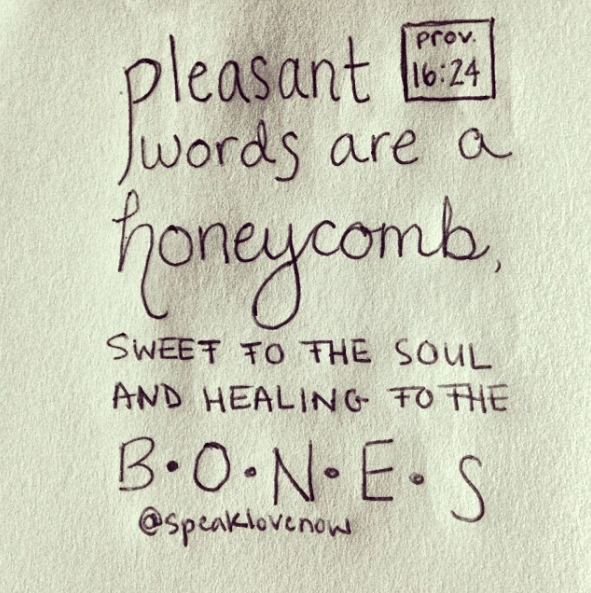 pleasant
prov.
16:24
words are a
honeycomb,
SWEET TO THE SOUL
AND HEALING TO THE
B•O•N•E•S
@speaklovenow